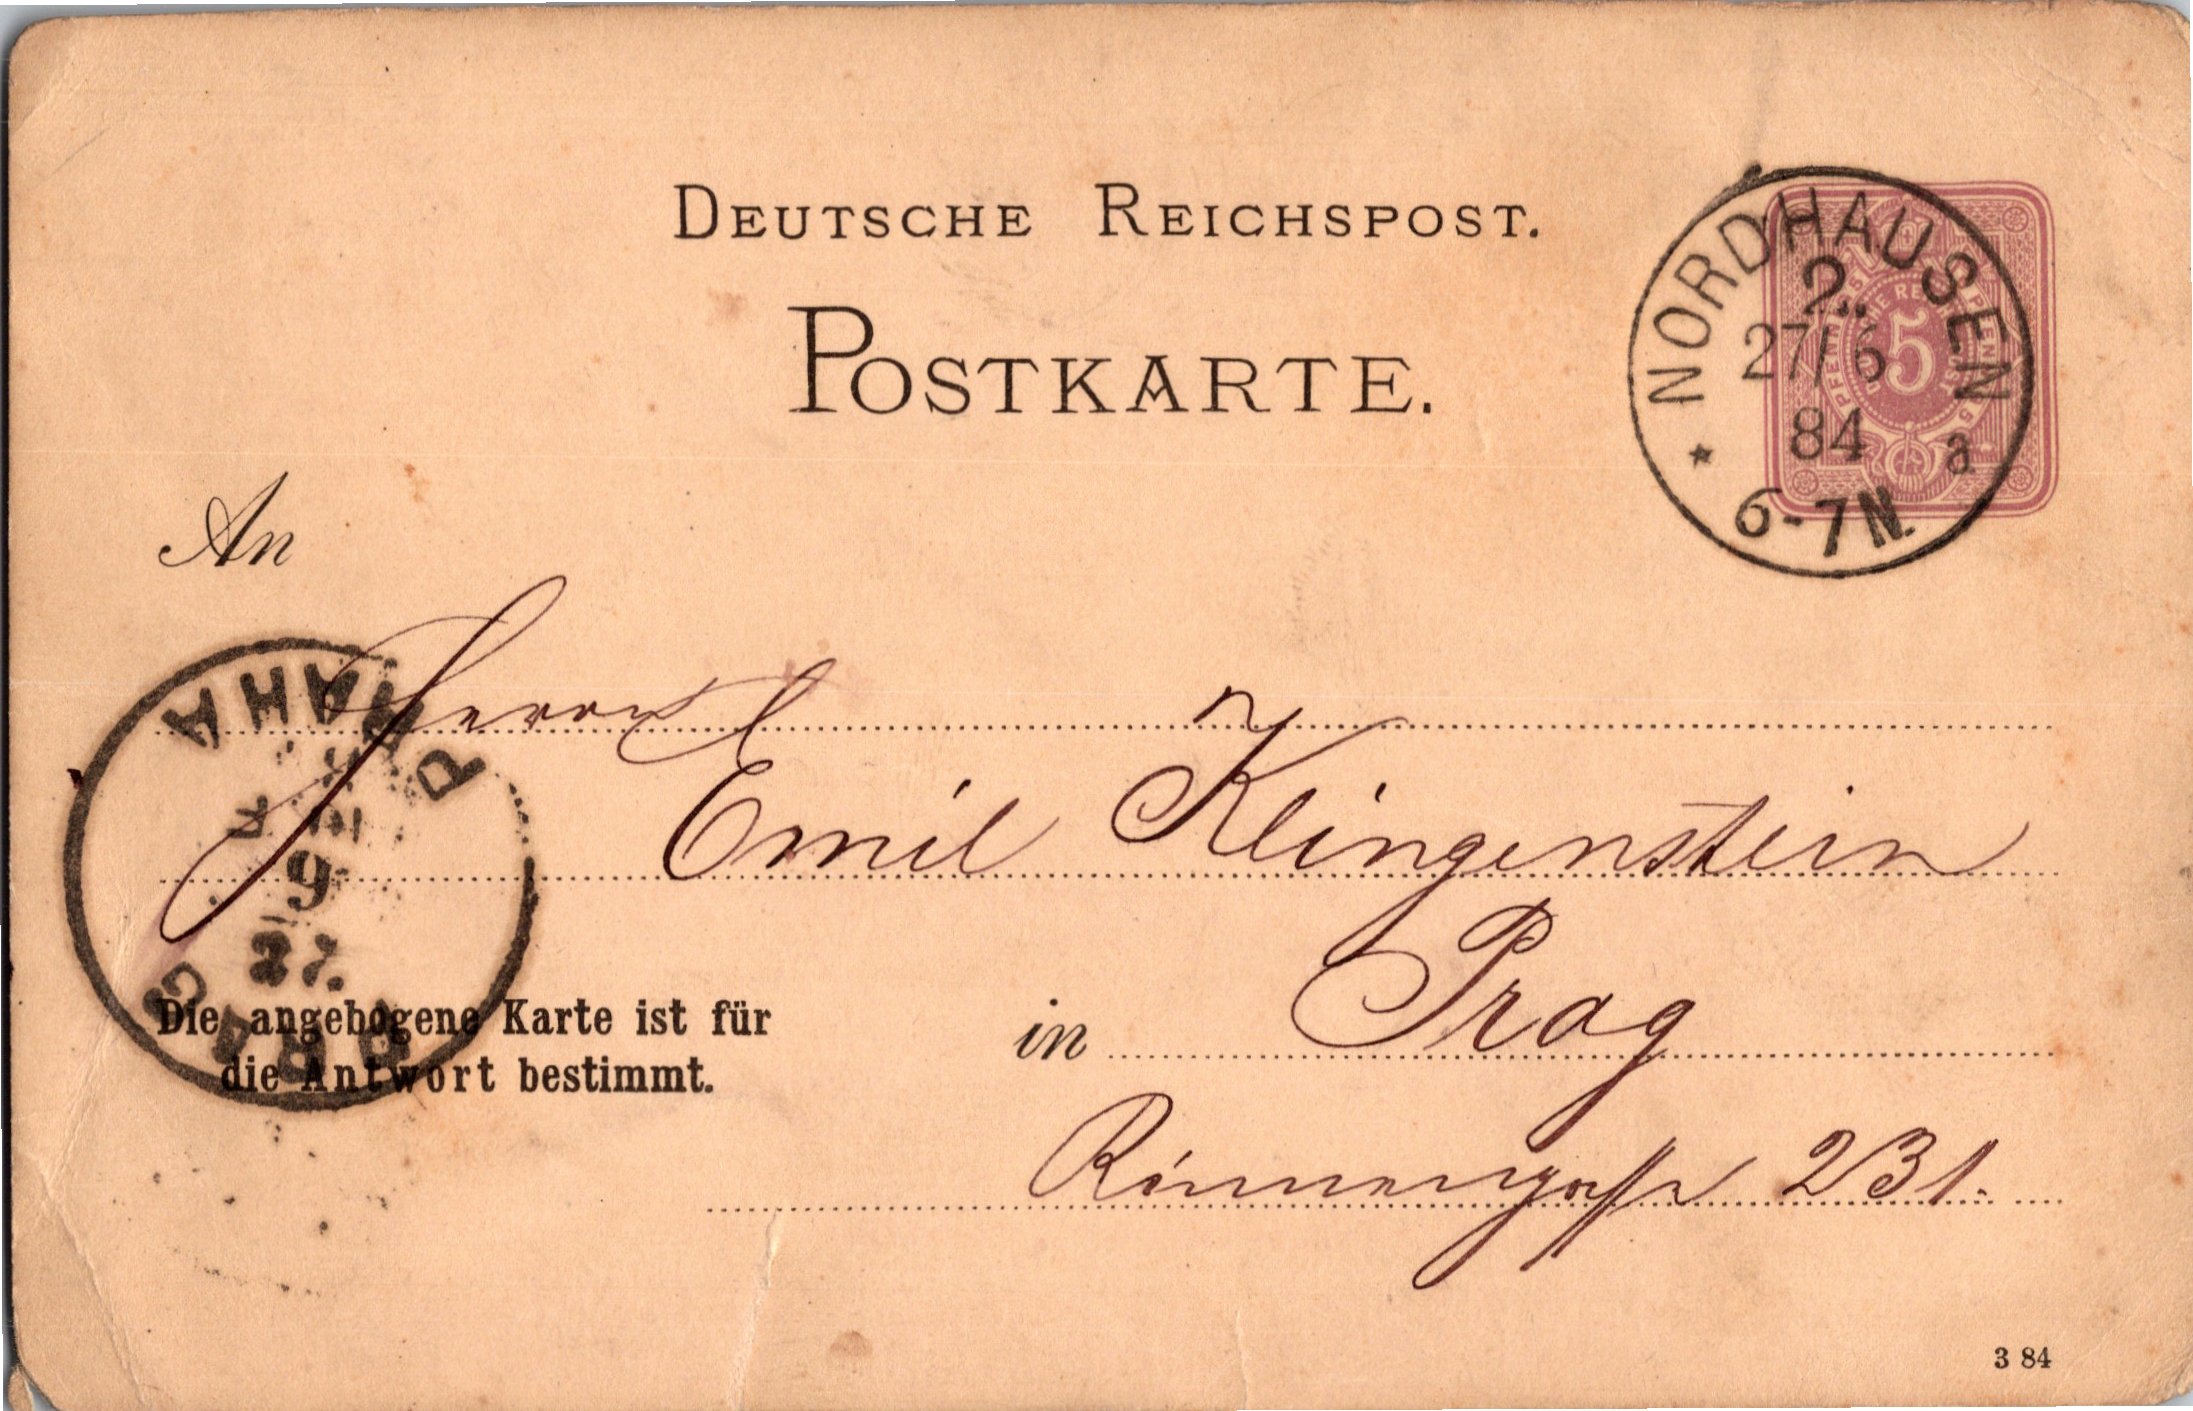 DEUTSCHE REICHSPOST.
POSTKARTE.
NORDHAUSEN
2.
27/6
84
* a
6-7N.
5
An
Herrn
Emil Klingenstein
PRAHA
6
27.
PRAG
Die angebogene Karte ist für
die Antwort bestimmt.
in Prag
231.
3 84